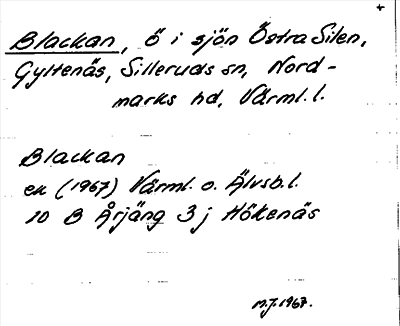 +
Blackan, ö i sjön Östra Silen,
Gyltenäs, Silleruds sn, Nord-
marks hd, Värml. l.
Blackan
ek (1967) Värml. o. Älvsb. l.
10 B Årjäng 3 j Hökenäs
M.J. 1967.